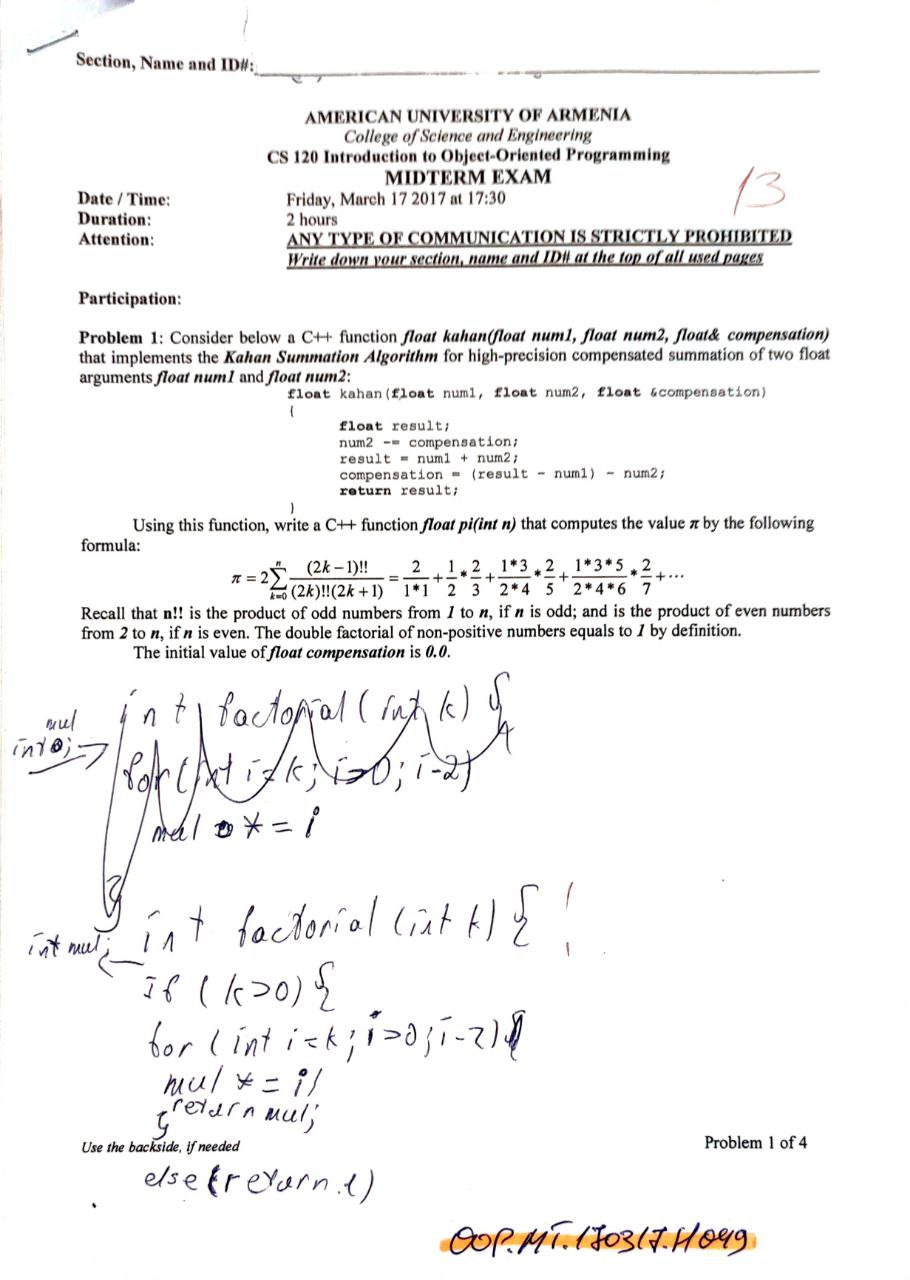 Section, Name and ID#:
AMERICAN UNIVERSITY OF ARMENIA
College of Science and Engineering
CS 120 Introduction to Object-Oriented Programming
MIDTERM EXAM
13
Date / Time: Friday, March 17 2017 at 17:30
Duration: 2 hours
Attention: ANY TYPE OF COMMUNICATION IS STRICTLY PROHIBITED
Write down your section, name and ID# at the top of all used pages
Participation:
Problem 1: Consider below a C++ function float kahan(float num1, float num2, float& compensation)
that implements the Kahan Summation Algorithm for high-precision compensated summation of two float
arguments float num1 and float num2:
float kahan(float num1, float num2, float &compensation)
{
float result;
num2 -= compensation;
result = num1 + num2;
compensation = (result - num1) - num2;
return result;
}
Using this function, write a C++ function float pi(int n) that computes the value π by the following
formula:
π = 2 ∑_{k=0}^{n} (2k – 1)!! / ((2k)!!(2k + 1)) = 2/(1*1) + 1/2 * 2/3 + (1*3)/(2*4) * 2/5 + (1*3*5)/(2*4*6) * 2/7 + ···
Recall that n!! is the product of odd numbers from 1 to n, if n is odd; and is the product of even numbers
from 2 to n, if n is even. The double factorial of non-positive numbers equals to 1 by definition.
The initial value of float compensation is 0.0.
int factorial (int k) {
mul
for (int i=k; i>0; i-2)
mul *= i
}
int factorial (int k) { !
int mul;
if (k>0) {
for (int i=k; i>0; i-2)
mul *= i;
return mul;
}
Use the backside, if needed
Problem 1 of 4
else (return 1)
OOP.MT.170317.H049